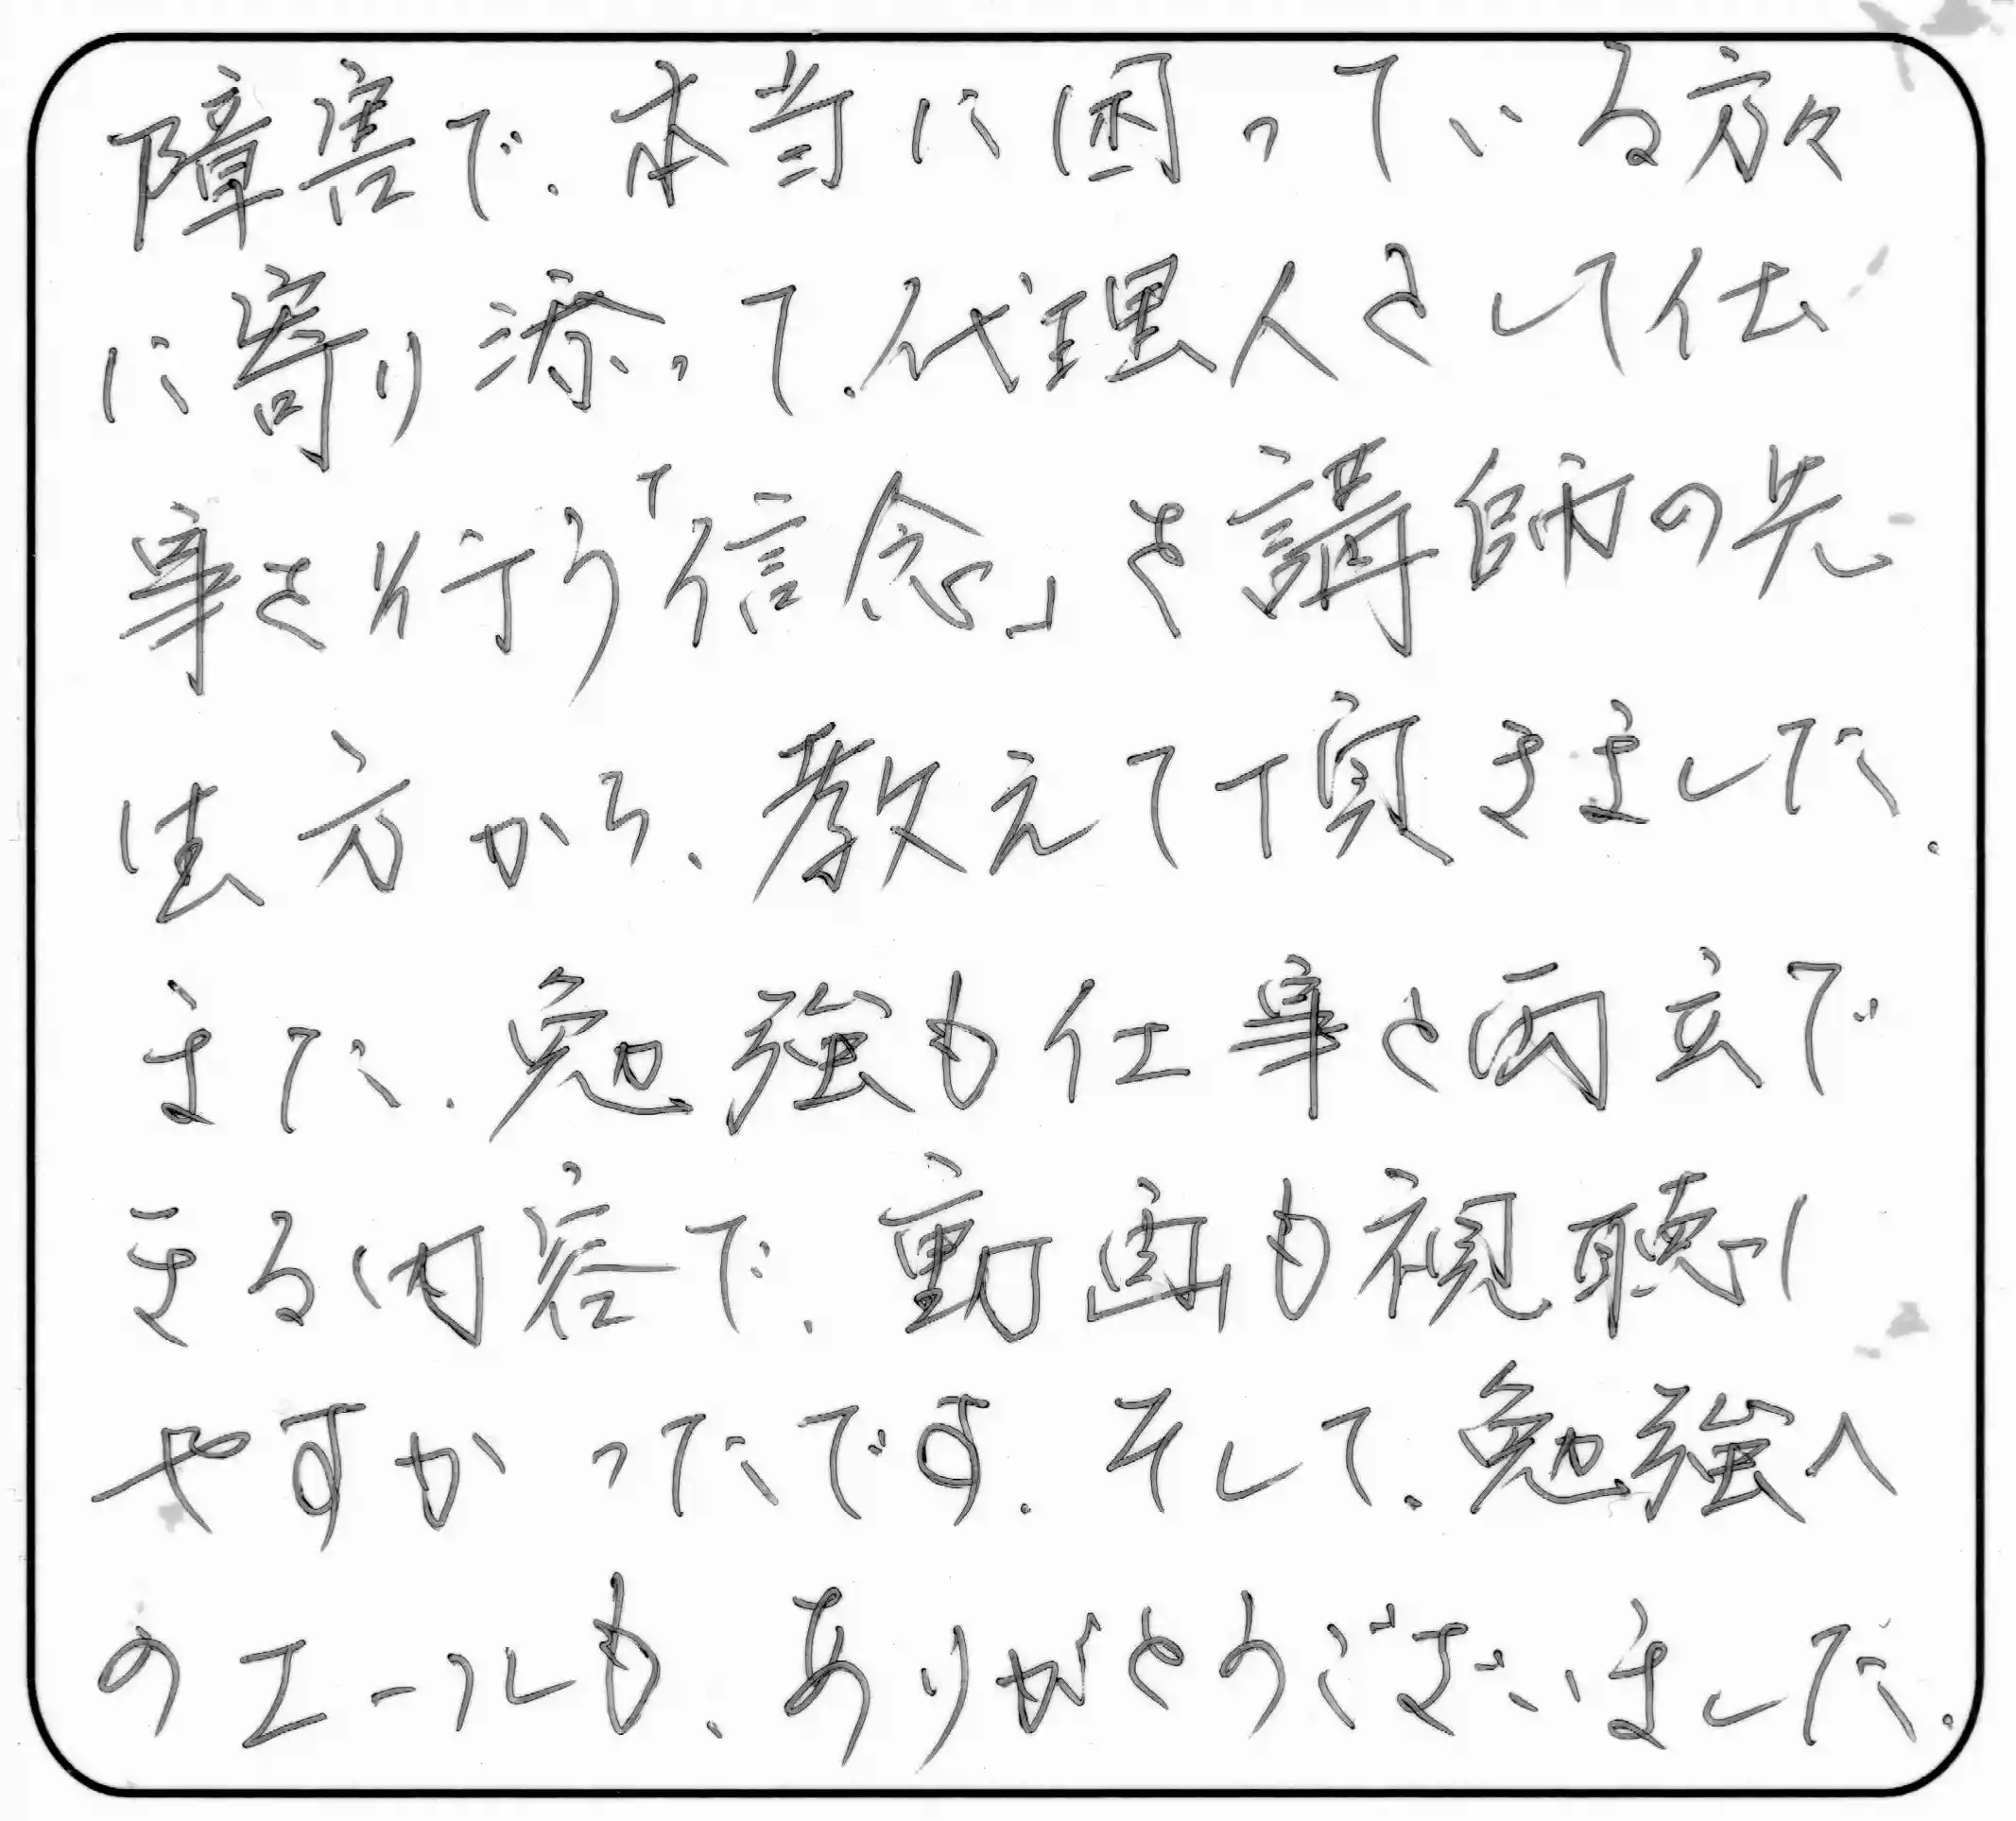 障害で、本当に困っている方々
に寄り添って、代理人として仕
事を行う「信念」を講師の先
生方から、教えて頂きました。
また、勉強も仕事と両立で
きる内容で、動画も視聴し
やすかったです。そして、勉強へ
のエールも、ありがとうございました。